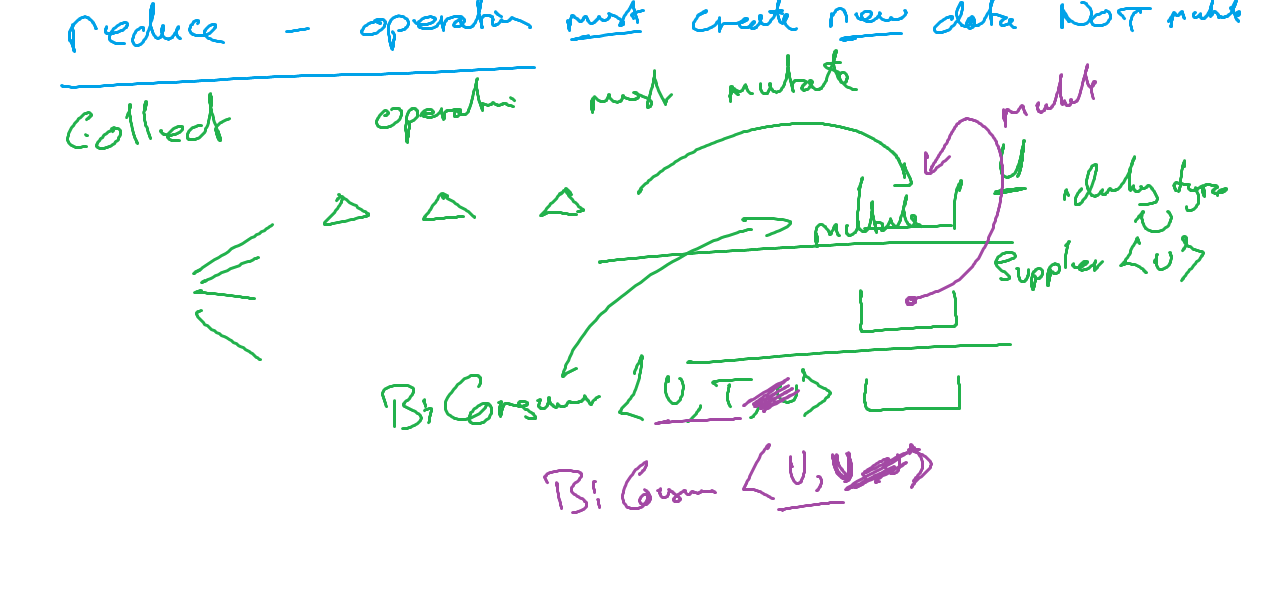 reduce - operation must create new data NOT mutate
Collect operation must mutate
mutate
U
mutable
U
Supplier <U>
BiConsumer <U, T>
BiConsum <U, U>